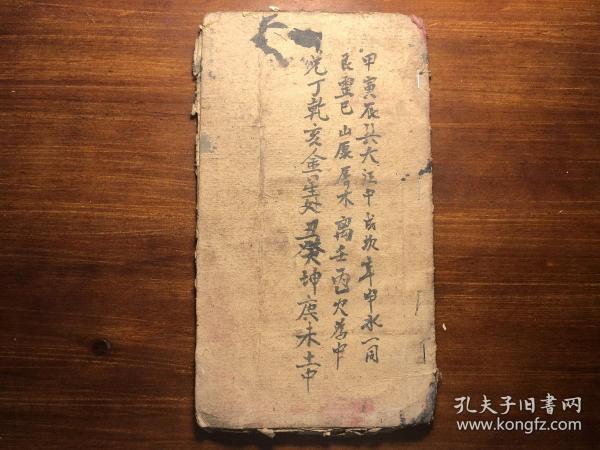 甲寅辰巽大江中戌坎辛申水一同
艮震巳山原属木離壬丙乙火为中
兊丁乾亥金星处丑癸坤庚未土中
孔夫子旧书网
www.kongfz.com